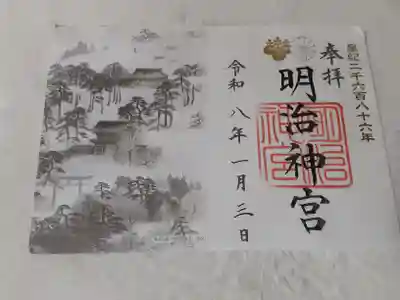 皇紀二千六百八十六年
奉拝
明治神宮
令和八年一月三日